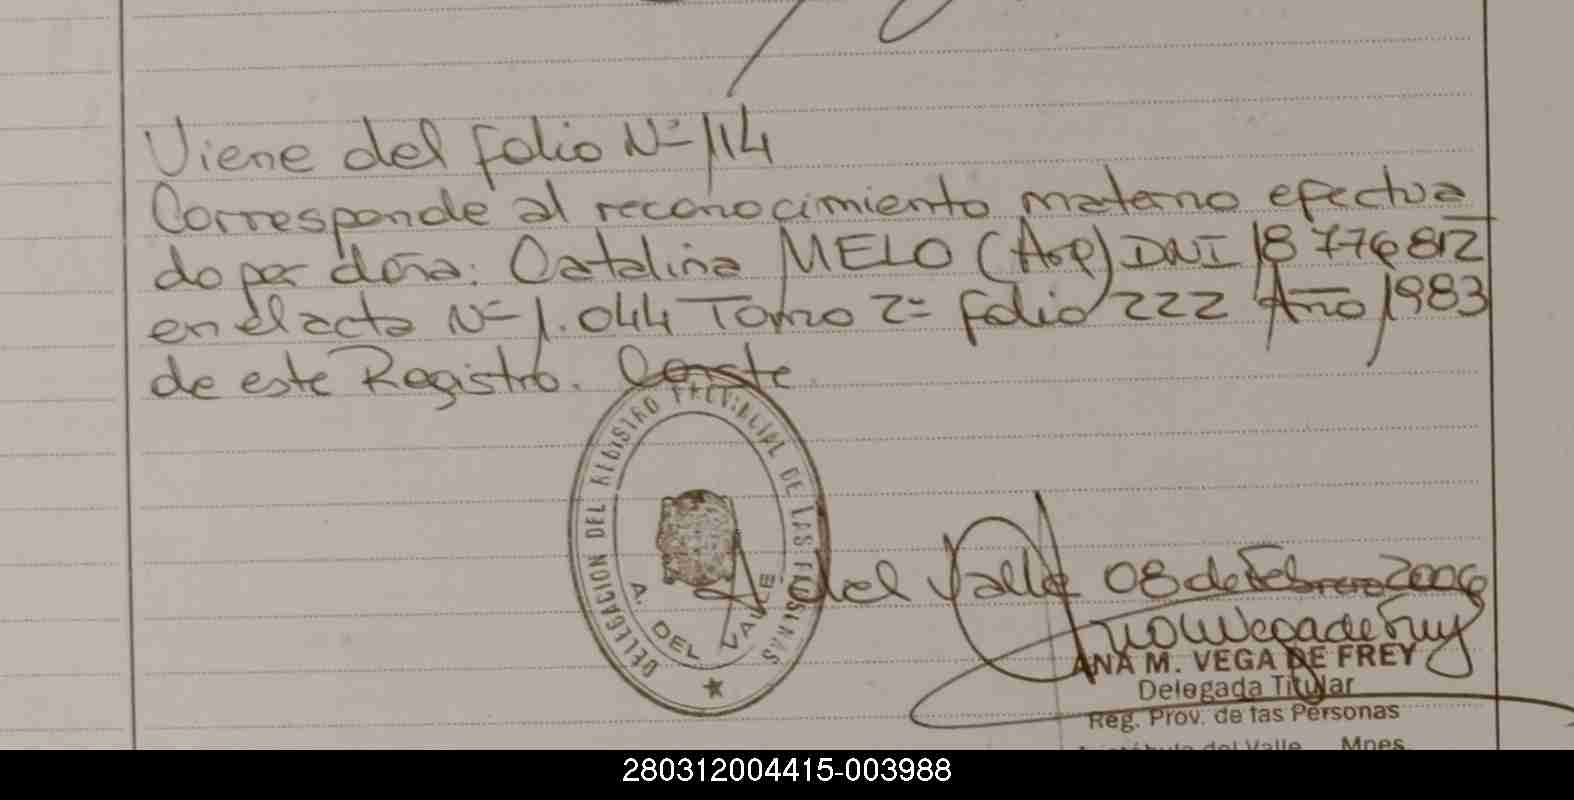 Viene del folio Nº 114
Corresponde al reconocimiento materno efectua
do por doña: Catalina MELO (Arg) DNI 18 776 812
en el acta Nº 1.044 Tomo 2º folio 222 Año 1983
de este Registro. Conste.
DELEGACION DEL REGISTRO PROVINCIAL DE LAS PERSONAS
A. DEL VALLE
A del Valle 08 de Febrero 2006
Ana M Vega de Frey
ANA M. VEGA DE FREY
Delegada Titular
Reg. Prov. de las Personas
del Valle Mnes.
280312004415-003988